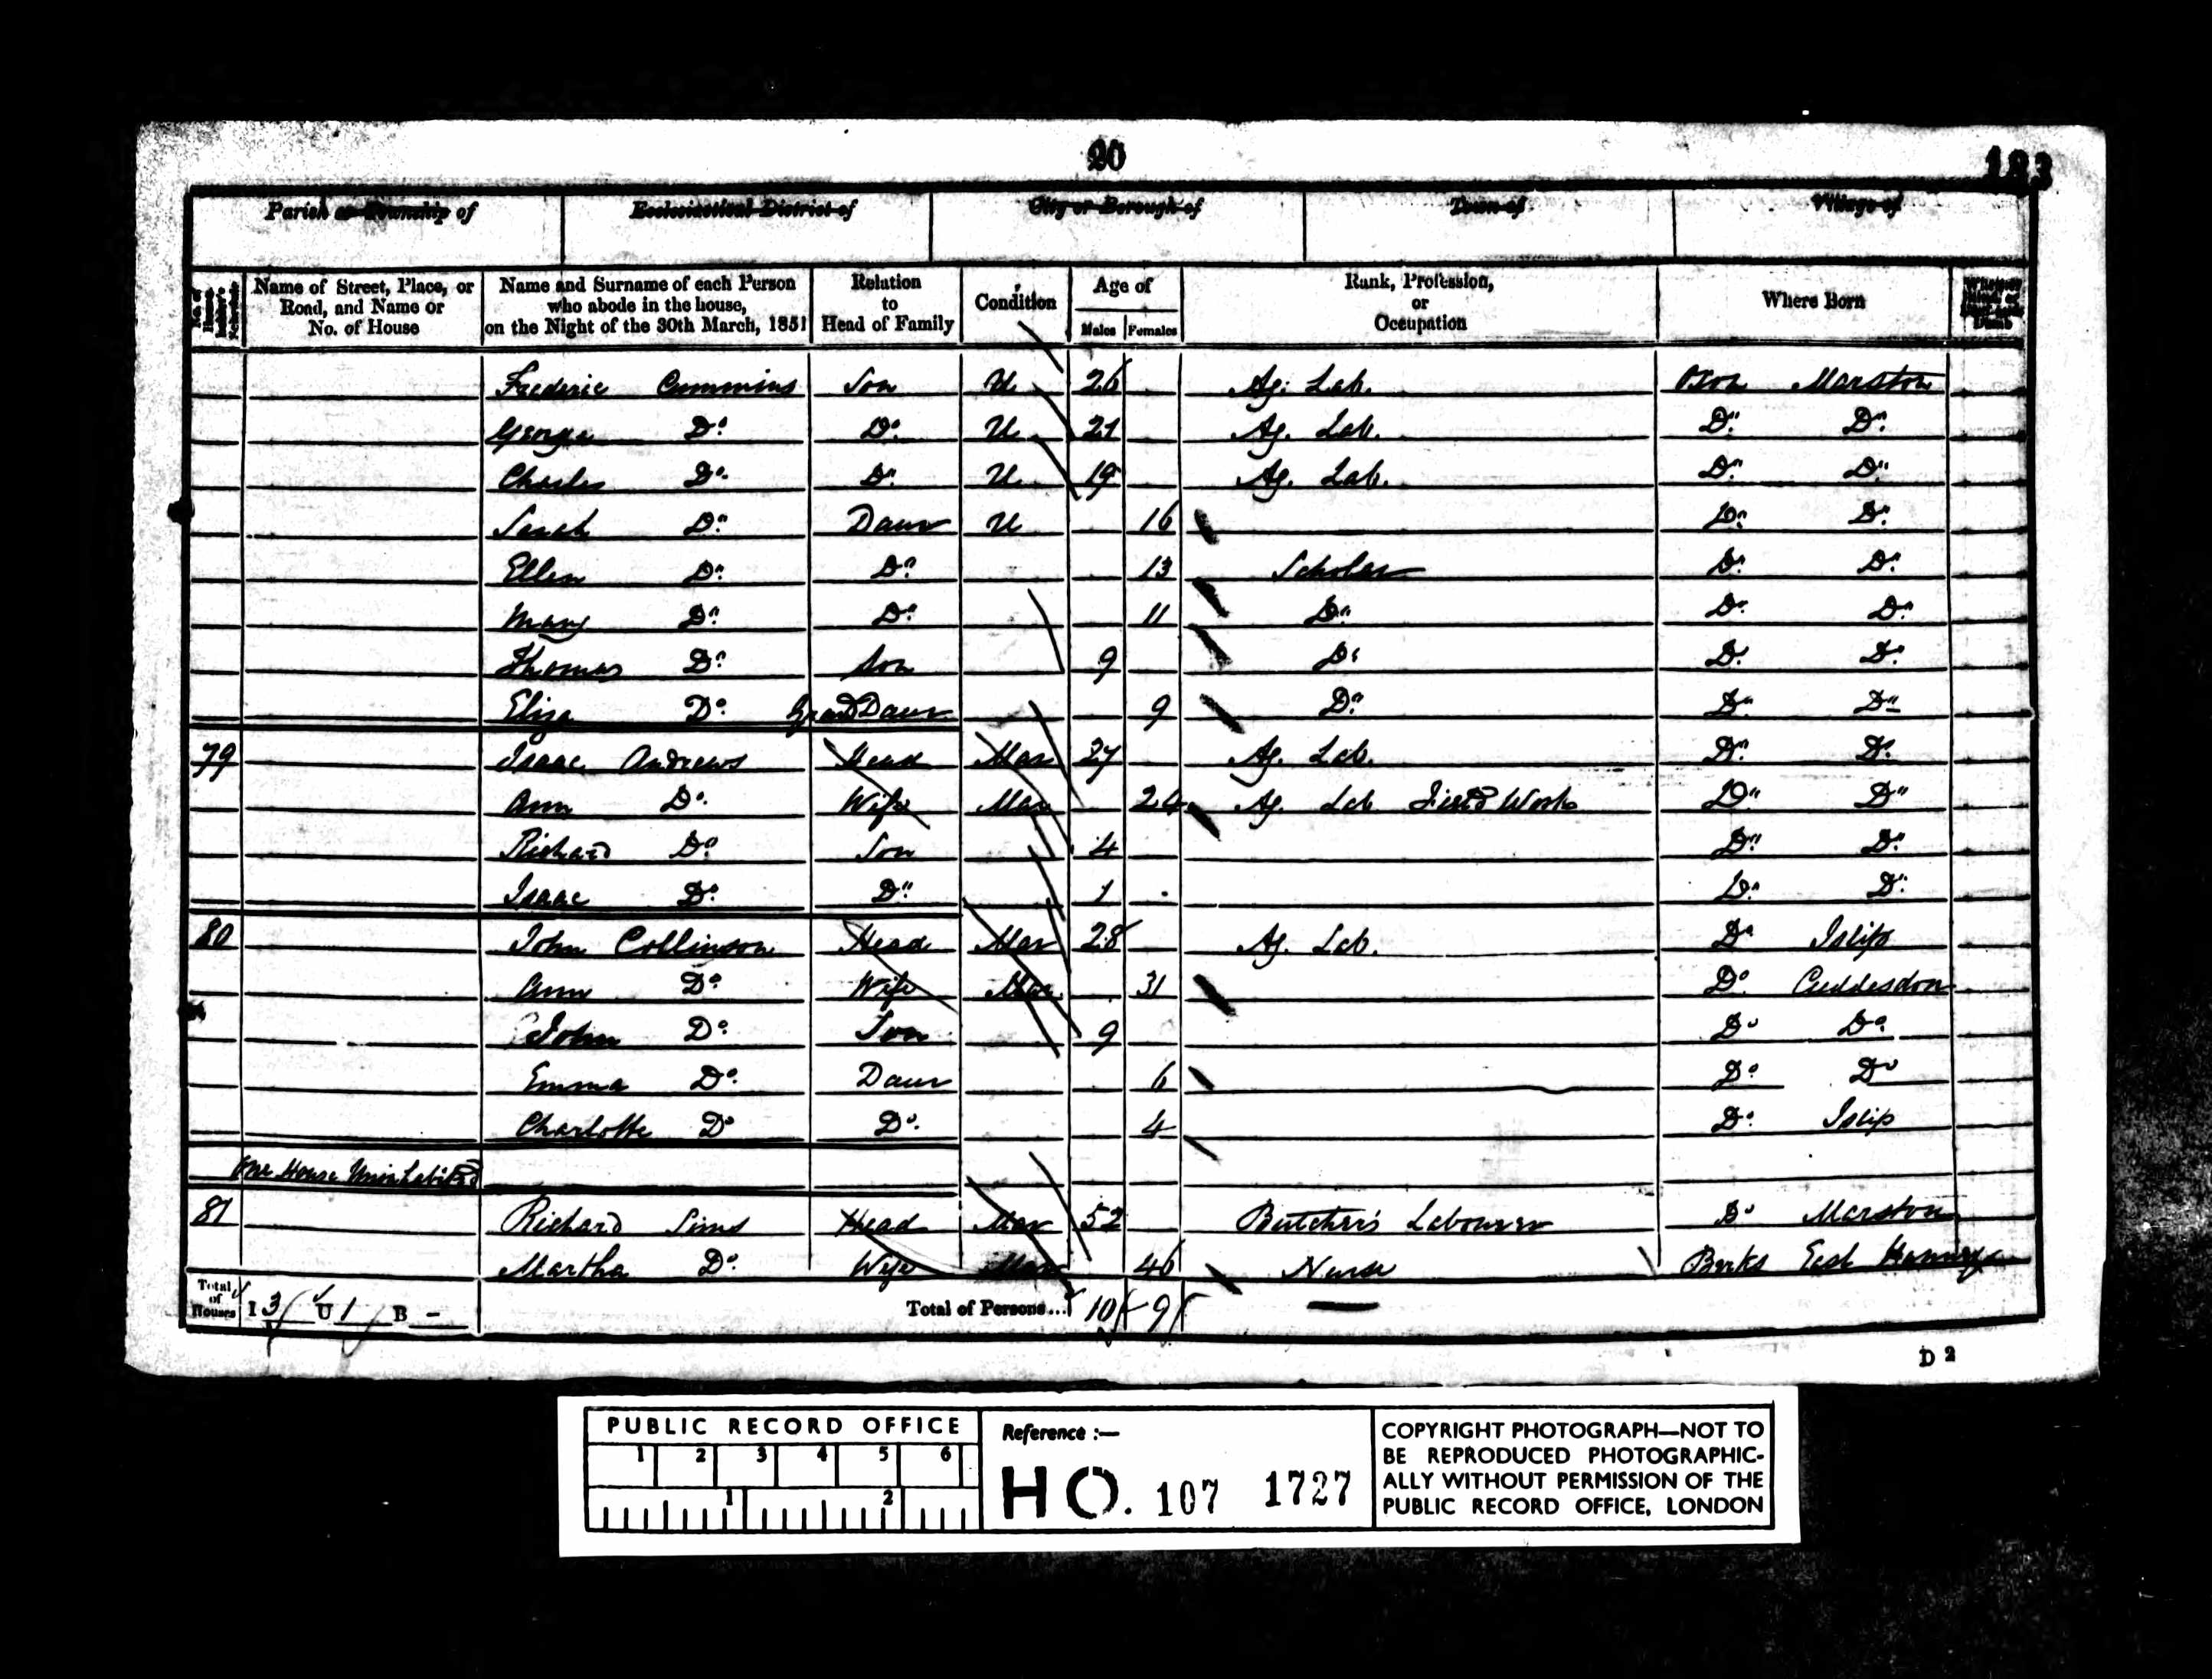 20
183
Parish or Township of Ecclesiastical District of City or Borough of Town of Village of
No. of House-holder's Schedule Name of Street, Place, or Road, and Name or No. of House Name and Surname of each Person who abode in the house, on the Night of the 30th March, 1851 Relation to Head of Family Condition Age of Males Females Rank, Profession, or Occupation Where Born Whether Blind, or Deaf-and-Dumb
Frederic Cummins Son U 26 Ag: Lab. Oxon Marston
George Do. Do. U 21 Ag. Lab. Do. Do.
Charles Do. Do. U 19 Ag. Lab. Do. Do.
Sarah Do. Daur U 16 Do. Do.
Ellen Do. Do. 13 Scholar Do. Do.
Mary Do. Do. 11 Do. Do. Do.
Thomas Do. Son 9 Do. Do. Do.
Eliza Do. Grand Daur 9 Do. Do. Do.
79 Isaac Andrews Head Mar 27 Ag. Lab. Do. Do.
Ann Do. Wife Mar 24 Ag. Lab Field Work Do. Do.
Richard Do. Son 4 Do. Do.
Isaac Do. Do. 1 Do. Do.
80 John Collinson Head Mar 28 Ag. Lab. Do Islip
Ann Do. Wife Mar 31 Do. Cuddesdon
John Do. Son 9 Do Do.
Emma Do. Daur 6 Do. Do
Charlotte Do Do. 4 Do. Islip
One House Uninhabited
81 Richard Sims Head Mar 52 Butcher's Labourer Do Marston
Martha Do. Wife Mar 46 Nurse Berks East Hanney
Total of Houses I 3 U 1 B - Total of Persons... 10 9
D 2
PUBLIC RECORD OFFICE
1 2 3 4 5 6
1 2
Reference :—
HO. 107 1727
COPYRIGHT PHOTOGRAPH—NOT TO
BE REPRODUCED PHOTOGRAPHIC-
ALLY WITHOUT PERMISSION OF THE
PUBLIC RECORD OFFICE, LONDON